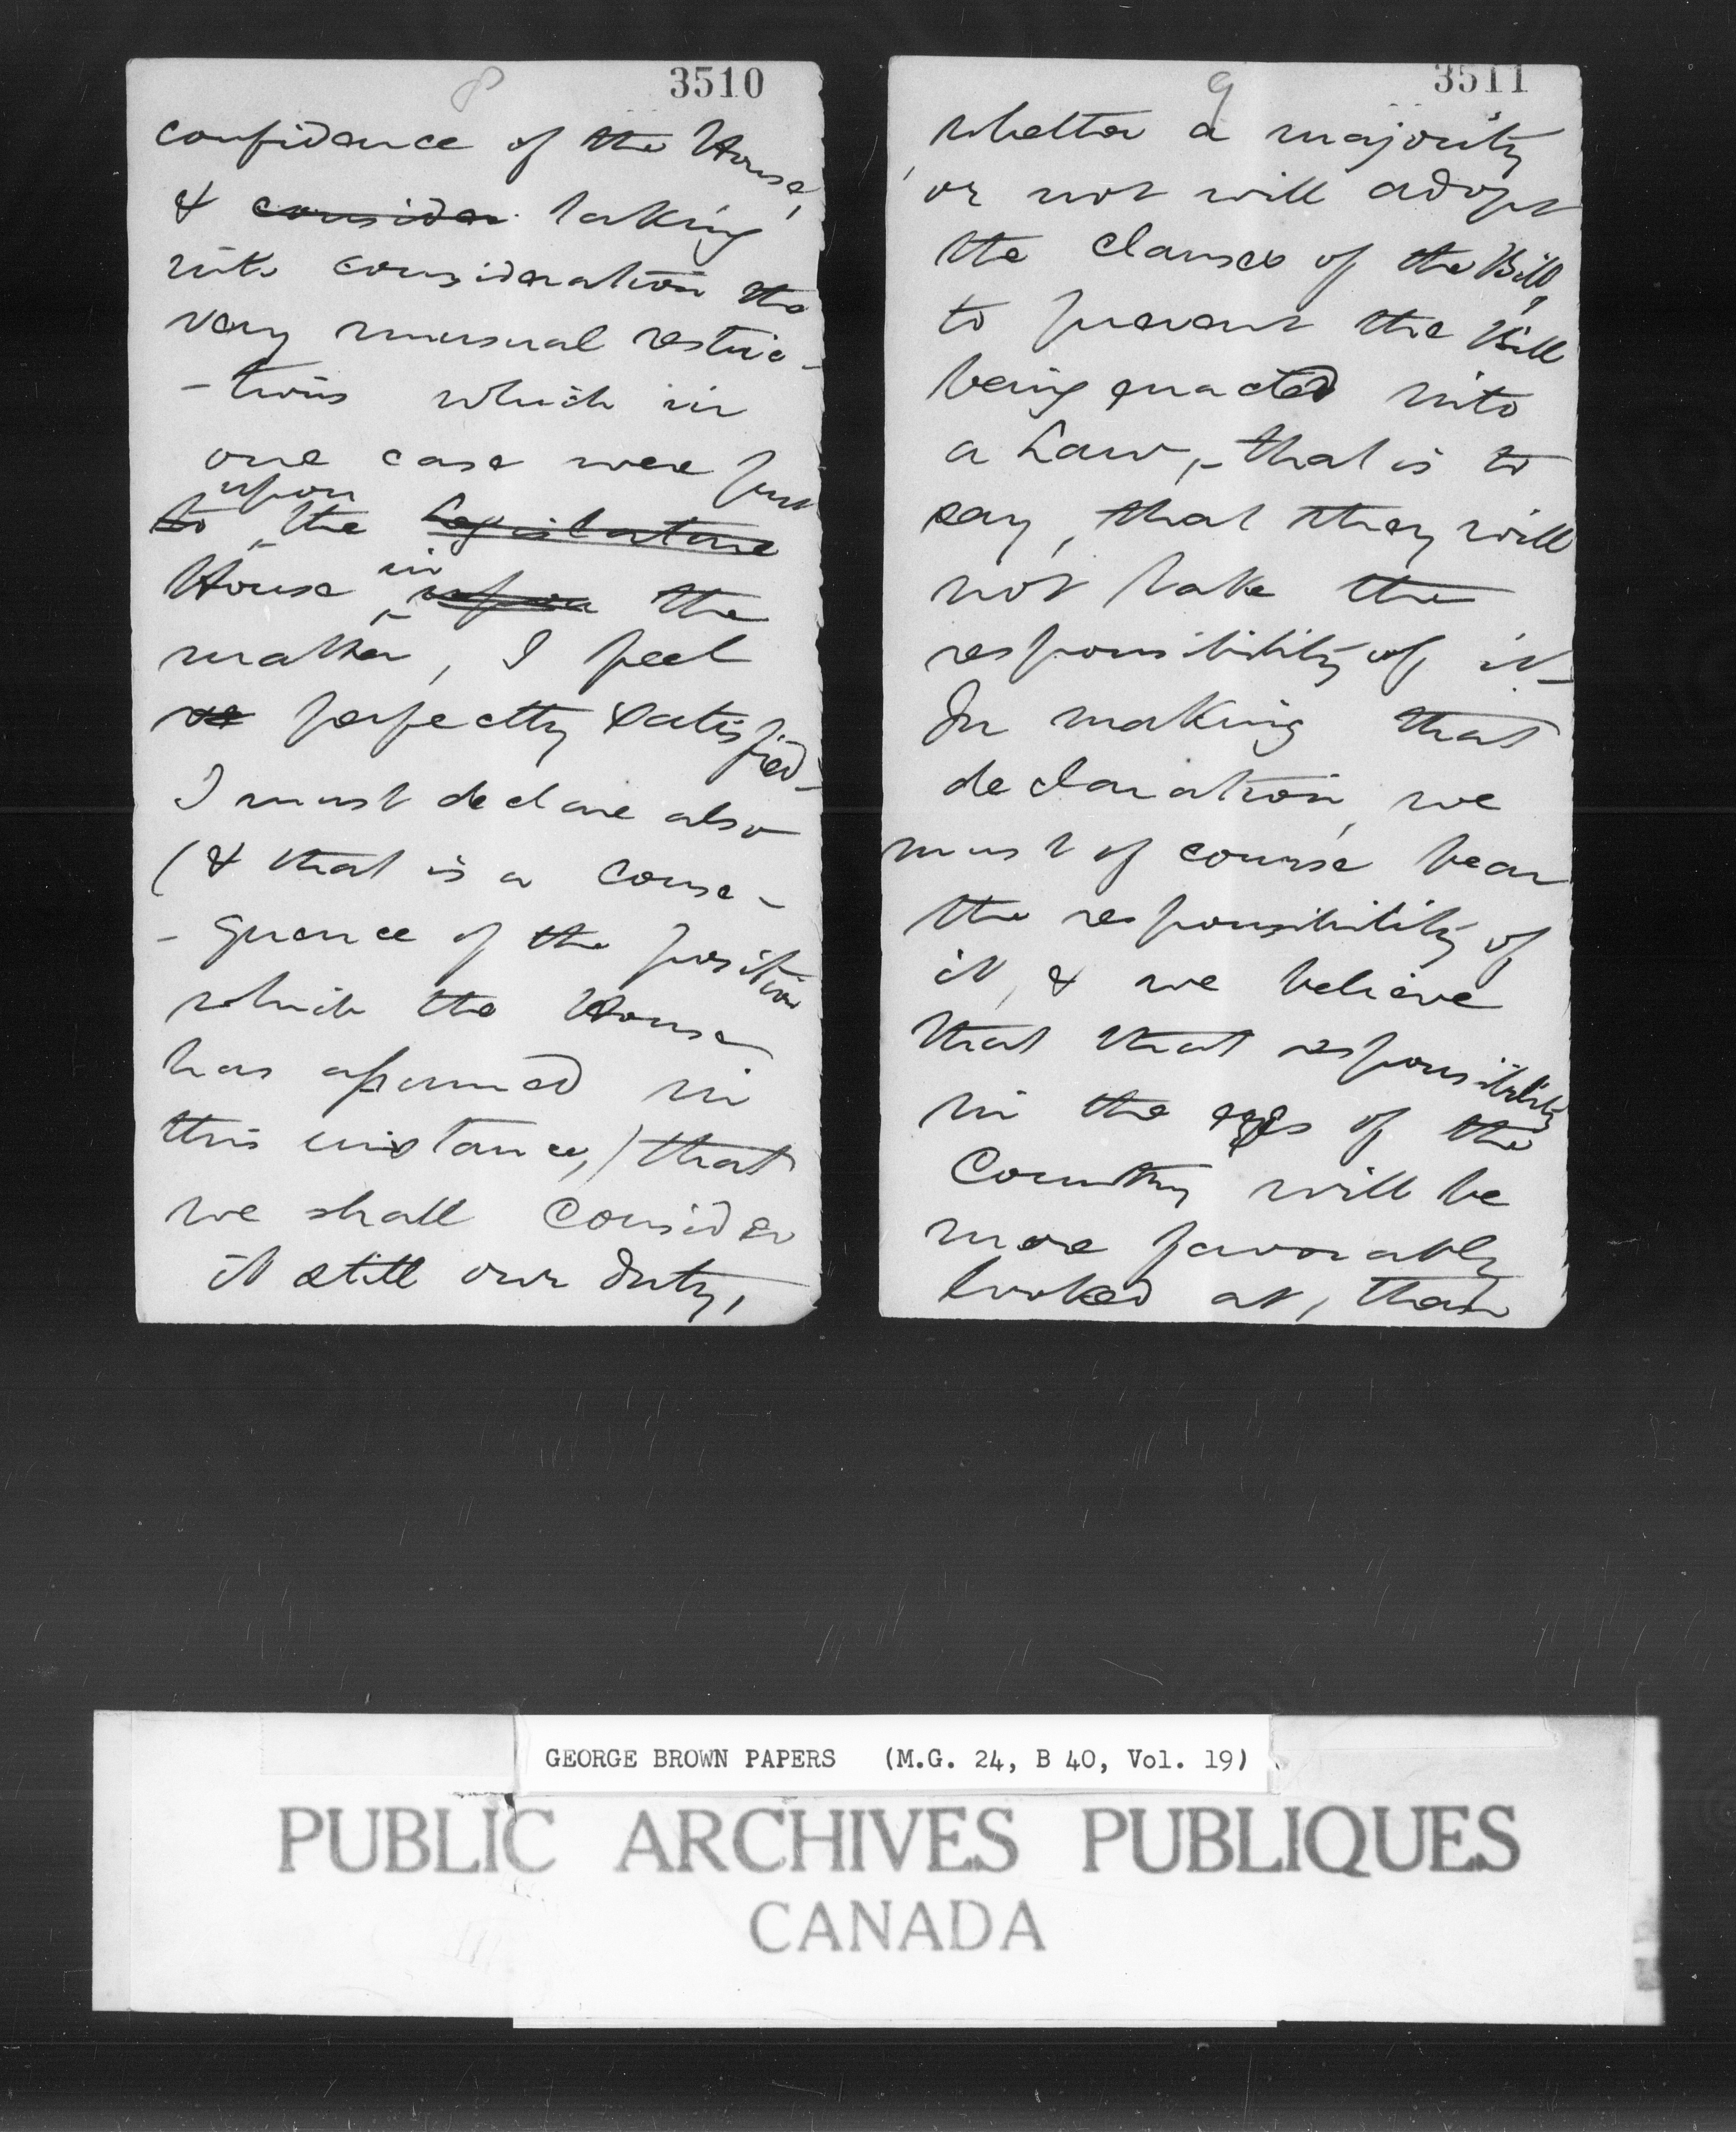 8
3510
confidence of the House,
& consider taking
into consideration the
very unusual restric-
-tions which in
one case were put
upon
to the Legislature
House in upon the
matter, I feel
ve perfectly satisfied-
I must declare also
(& that is a conse-
-quence of the position
which the House
has assumed in
this instance,) that
we shall consider
it still our duty,
9
3511
whether a majority
or not will adopt
the clauses of the Bill,
to prevent the Bill
being enacted into
a Law,- that is to
say, that they will
not take the
responsibility of it-
In making that
declaration, we
must of course bear
the responsibility of
it, & we believe
that that responsibility
in the eyes of the
Country will be
more favorably
looked at, than
GEORGE BROWN PAPERS (M.G. 24, B 40, Vol. 19)
PUBLIC ARCHIVES PUBLIQUES
CANADA